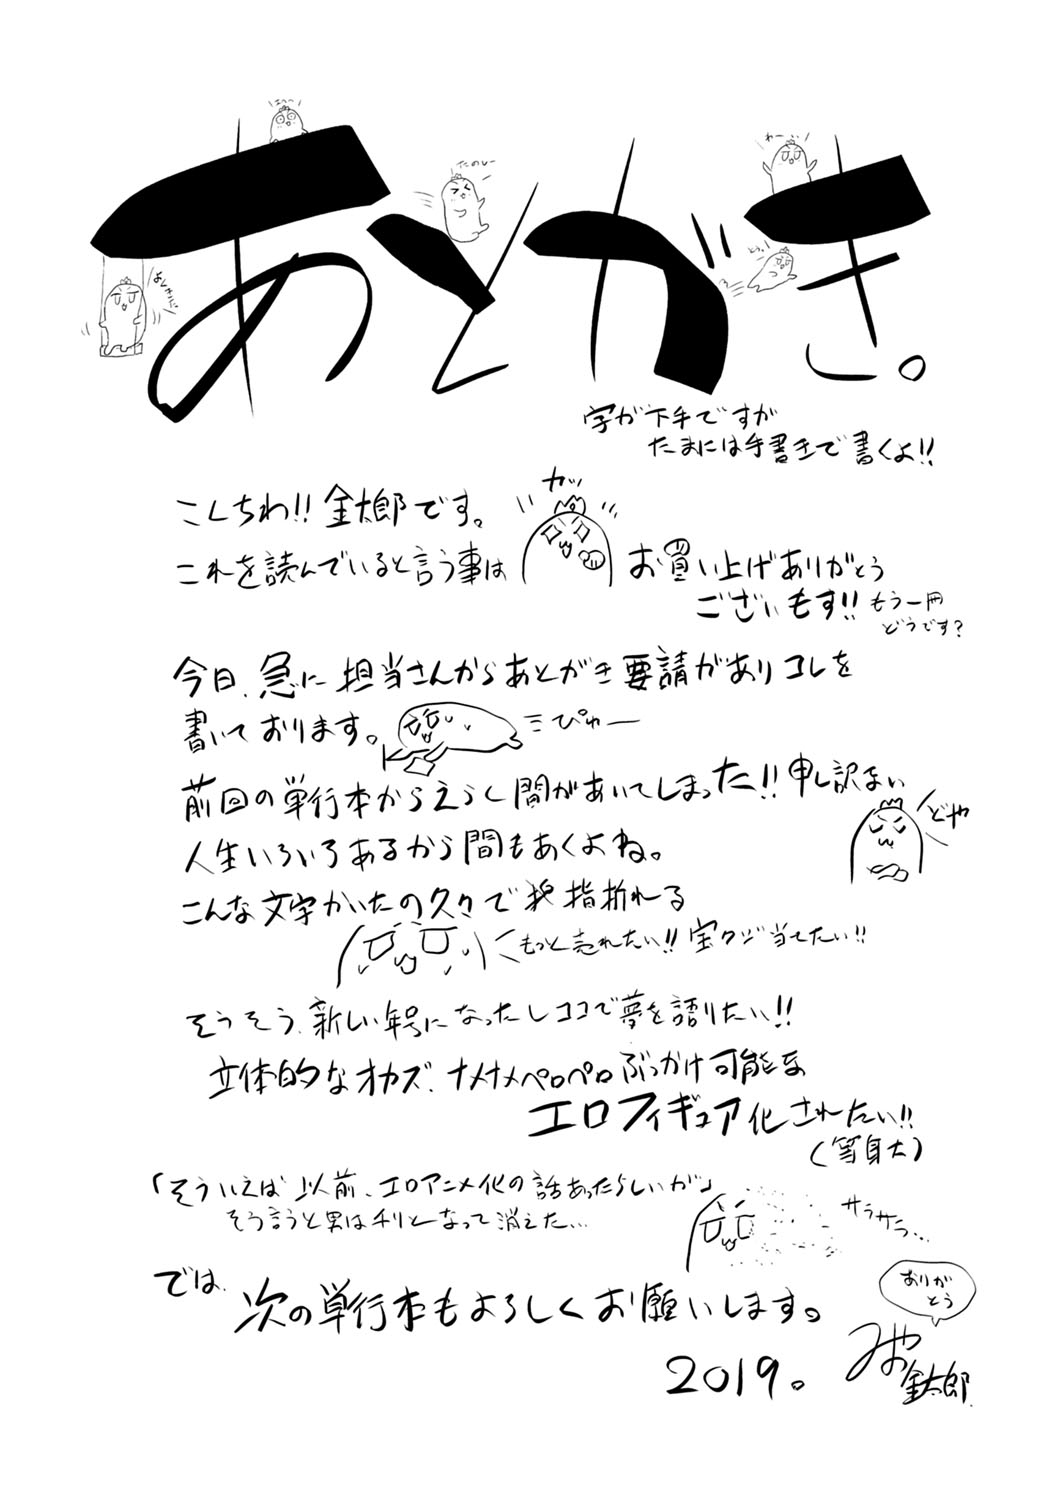 はうっ
わーぶ
たのしー
あとがき。
とうっ
字が下手ですが
たまには手書きで書くよ!!
こんちわ!!金太郎です。
カッ
これを読んでいると言う事は
お買い上げありがとう
ございもす!!
もう一冊
どうです?
今日、急に担当さんからあとがき要請がありコレを
書いております。
ぴゅー
前回の単行本からえらく間があいてしまった!!申し訳ない
どや
人生いろいろあるから間もあくよね。
こんな文字かいたの久々で 指折れる
もっと売れたい!!宝クジ当てたい!!
そうそう、新しい年号になったしココで夢を語りたい!!
立体的なオカズ、ナメナメペロペロぶっかけ可能な
エロフィギュア化されたい!!
(等身大)
「そういえば以前、エロアニメ化の話あったらしいが」
そう言うと男はチリとなって消えた…
サラサラ…
では、
次の単行本もよろしくお願いします。
ありがとう
2019。
みやの金太郎